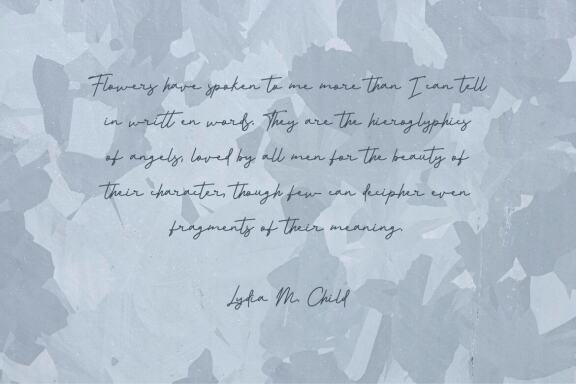 Flowers have spoken to me more than I can tell
in writt en words. They are the hieroglyphics
of angels, loved by all men for the beauty of
their character, though few can decipher even
fragments of their meaning.
Lydia M. Child